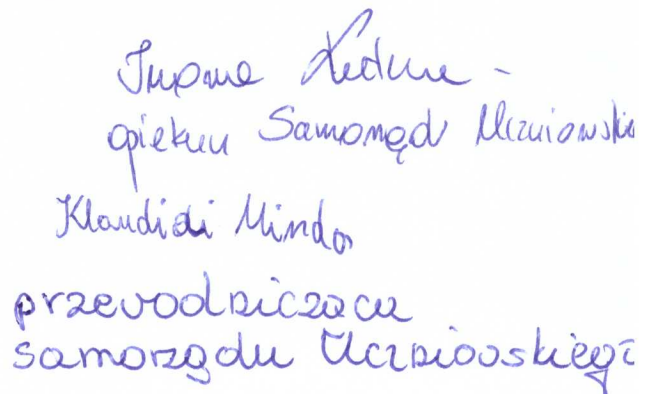 Iwona
opiekun Samorząd Uczniowski
Klaudia Minda
przewodnicząca
samorządu Uczniowskiego